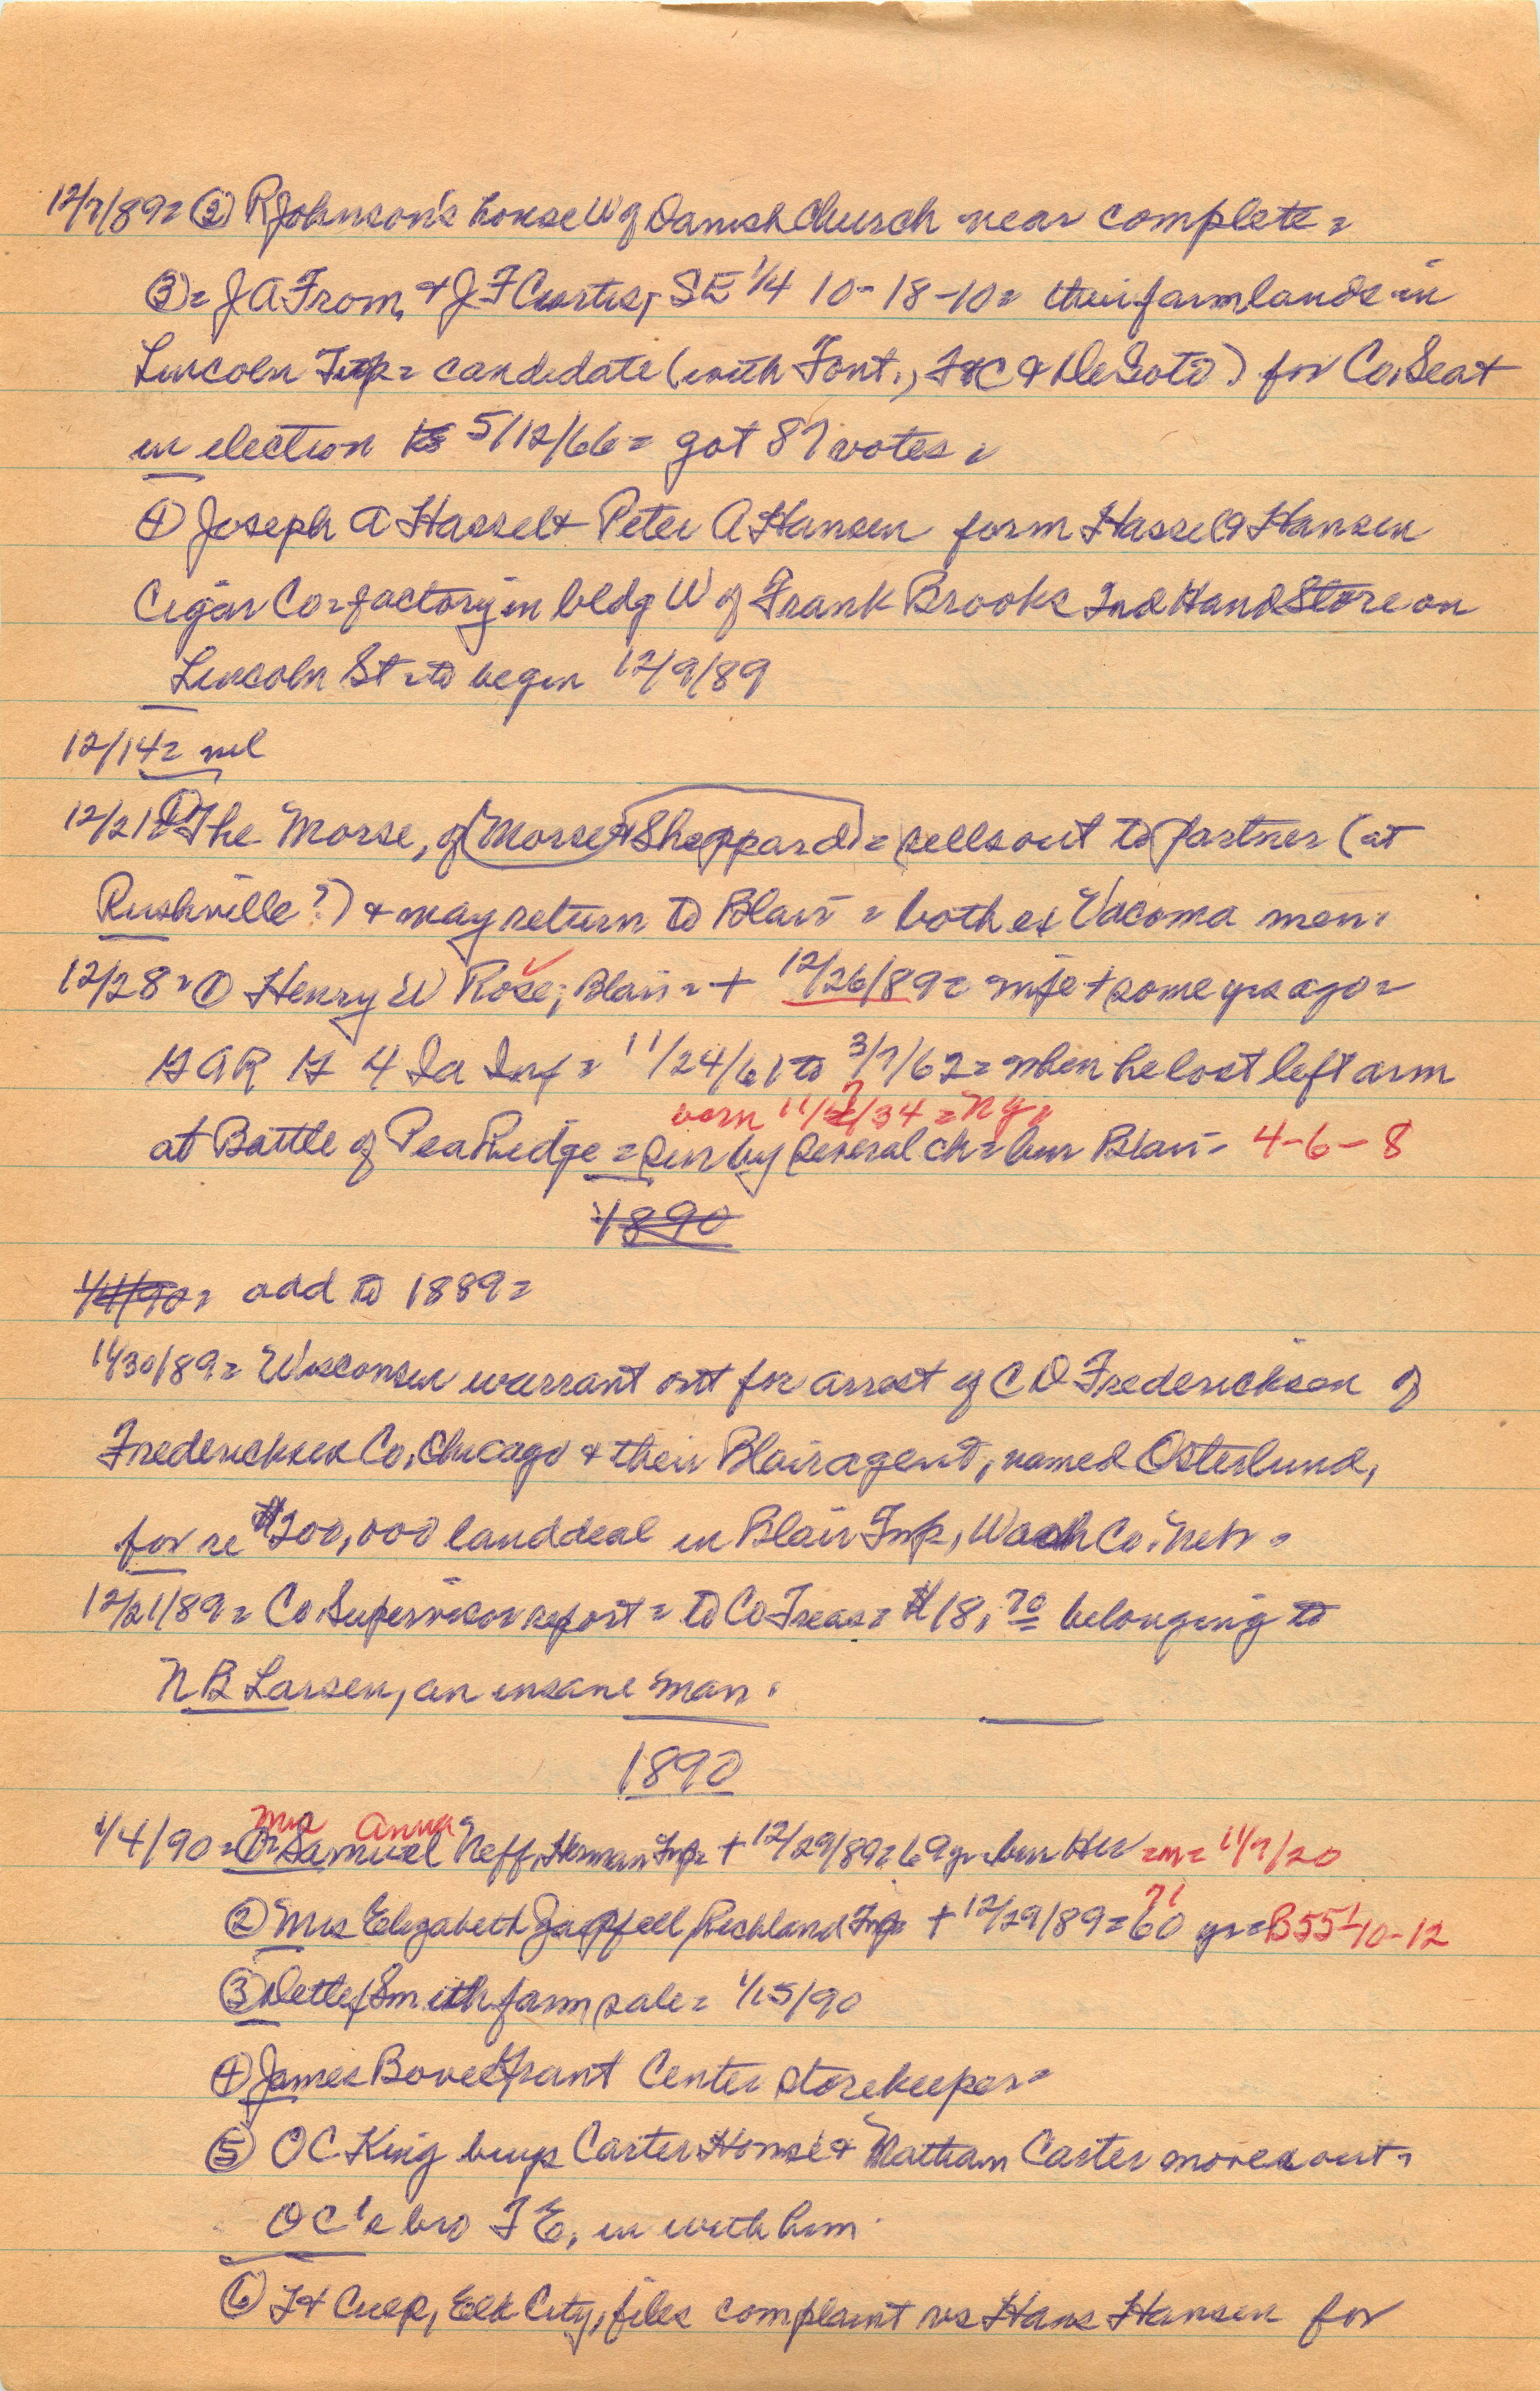 12/7/89= ② R Johnson's house W of Danish Church near complete =
③= J A From, & J F Curtis, SE 1/4 10-18-10= their farm lands in
Lincoln Twp= candidate (with Font., Ft C & DeSoto) for Co. Seat
in election 5/12/66= got 87 votes.
④ Joseph A Hassel & Peter A Hansen form Hassel & Hansen
Cigar Co= factory in bldg W of Frank Brooks 2nd Hand Store on
Lincoln St= to begin 12/9/89
12/14= nil
12/21= ① The Morse, of (Morse & Sheppard)= sells out to partner (at
Rushville?) & may return to Blair = both ex Vacoma men.
12/28= ① Henry W Rose, Blair= + 12/26/89= wife + some yrs ago=
GAR G 4 Ia Inf= 11/24/61 to 3/7/62= when he lost left arm
born 11/ /34= NY=
at Battle of Pea Ridge = sur by several ch= bur Blair- 4-6-8
1890
1/4/90= add to 1889=
11/30/89= Wisconsin warrant out for arrest of C O Frederickson of
Fredericksen Co. Chicago & their Blair agent, named Osterlund,
for re $200,000 land deal in Blair Twp, Wash Co. Neb=
12/21/89= Co Supervisor report= to Co Treas= $18.70 belonging to
N B Larsen, an insane man.
1890
Mrs Anna
1/4/90= Samuel Neff, Herman Twp= + 12/29/89= 69 yr= bur Her =m= 11/7/20
71
② Mrs Elizabeth Richland Twp= + 12/29/89= 60 yr= B55L 10-12
③ Detlef Smith farm sale= 1/15/90
④ James Bovee Grant Center storekeeper=
⑤ O C King buys Carter House & Matham Carter moves out=
OC's bro F E, in with him
⑥ Culp, Elk City, files complaint vs Hans Hansen for